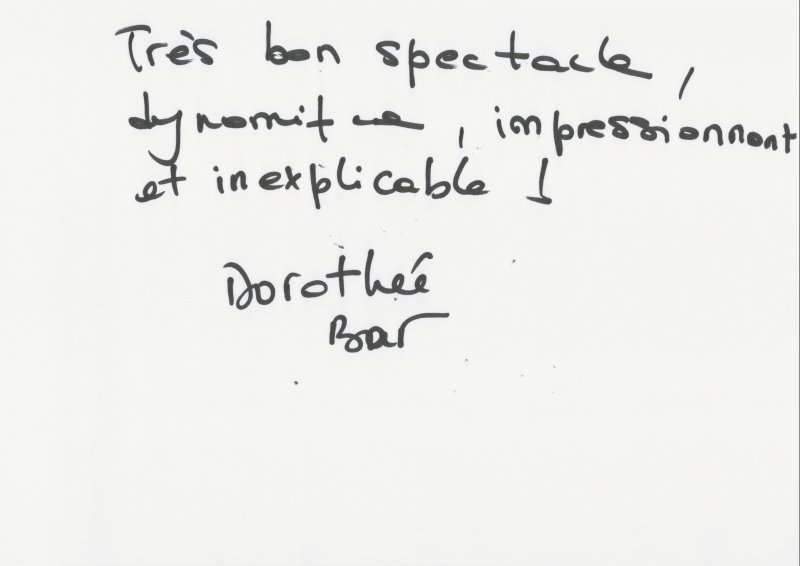 Très bon spectacle,
dynamite, impressionnant
et inexplicable !
Dorothée
Bar